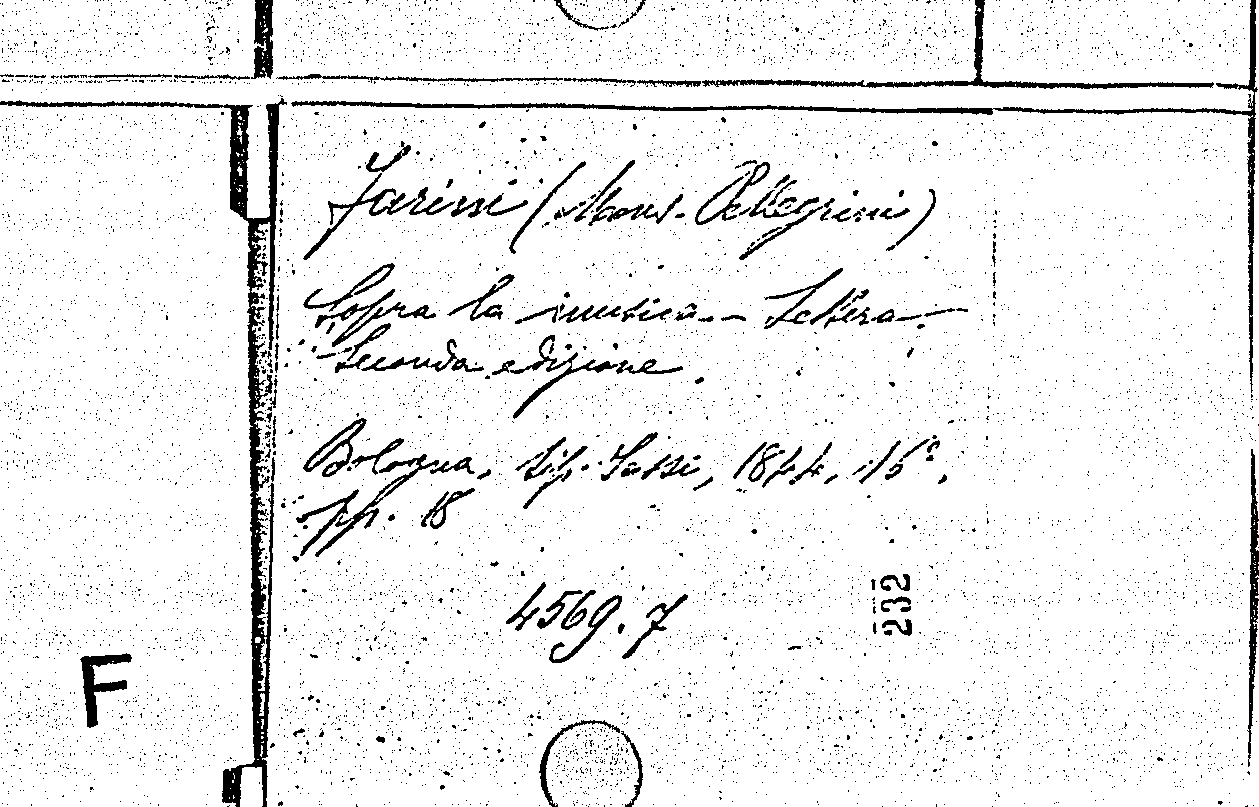 Farini (Mons. Pellegrini)
Sopra la musica. - Lettera. -
Seconda edizione.
Bologna, tip. Sassi, 1844, 16°,
pp. 18
4569.7
232
F